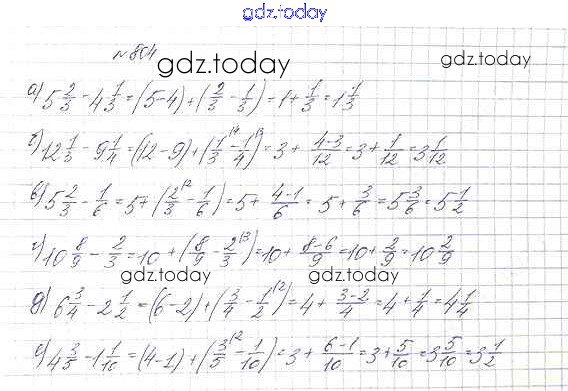 gdz.today
№ 804
gdz.today
gdz.today
а) 5 2/3 - 4 1/3 = (5-4) + (2/3 - 1/3) = 1 + 1/3 = 1 1/3
б) 12 1/3 - 9 1/4 = (12-9) + (1/3 ^(4 - 1/4 ^(3) = 3 + (4-3)/12 = 3 + 1/12 = 3 1/12
в) 5 2/3 - 1/6 = 5 + (2/3 ^(2 - 1/6) = 5 + (4-1)/6 = 5 + 3/6 = 5 3/6 = 5 1/2
г) 10 8/9 - 2/3 = 10 + (8/9 - 2/3 ^(3) = 10 + (8-6)/9 = 10 + 2/9 = 10 2/9
gdz.today gdz.today
д) 6 3/4 - 2 1/2 = (6-2) + (3/4 - 1/2 ^(2) = 4 + (3-2)/4 = 4 + 1/4 = 4 1/4
е) 4 3/5 - 1 1/10 = (4-1) + (3/5 ^(2 - 1/10) = 3 + (6-1)/10 = 3 + 5/10 = 3 5/10 = 3 1/2